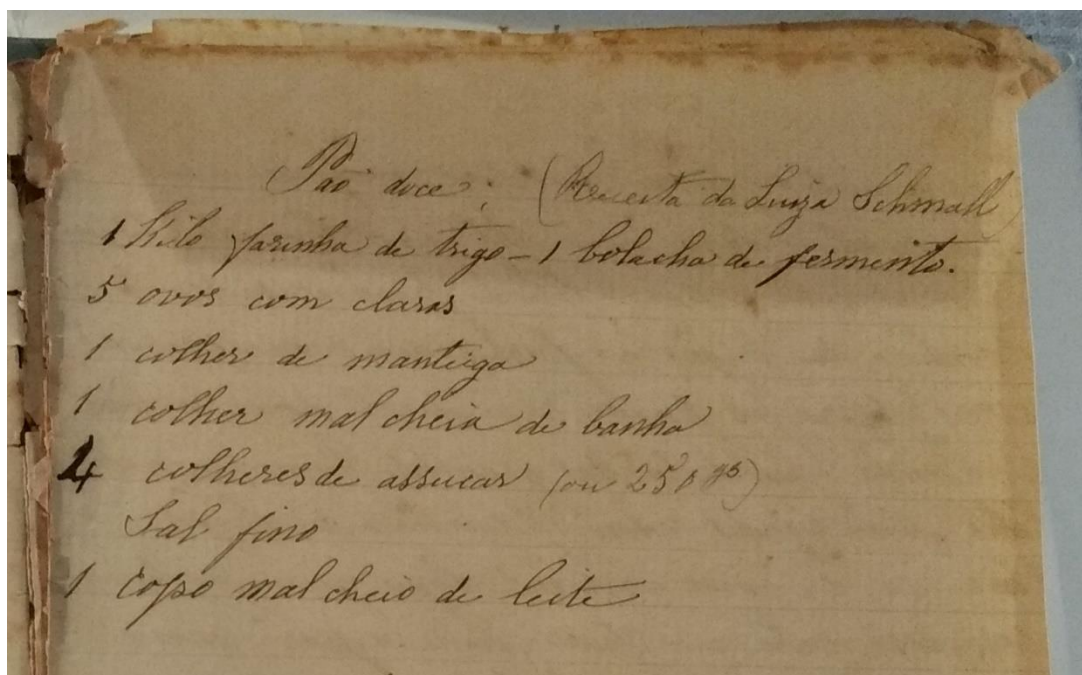 Pão doce; (Receita da Luiza Schmall)
1 Kilo farinha de trigo - 1 bolacha de fermento.
5 ovos com claras
1 colher de manteiga
1 colher mal cheia de banha
4 colheres de assucar (ou 250 grs)
Sal fino
1 copo mal cheio de leite